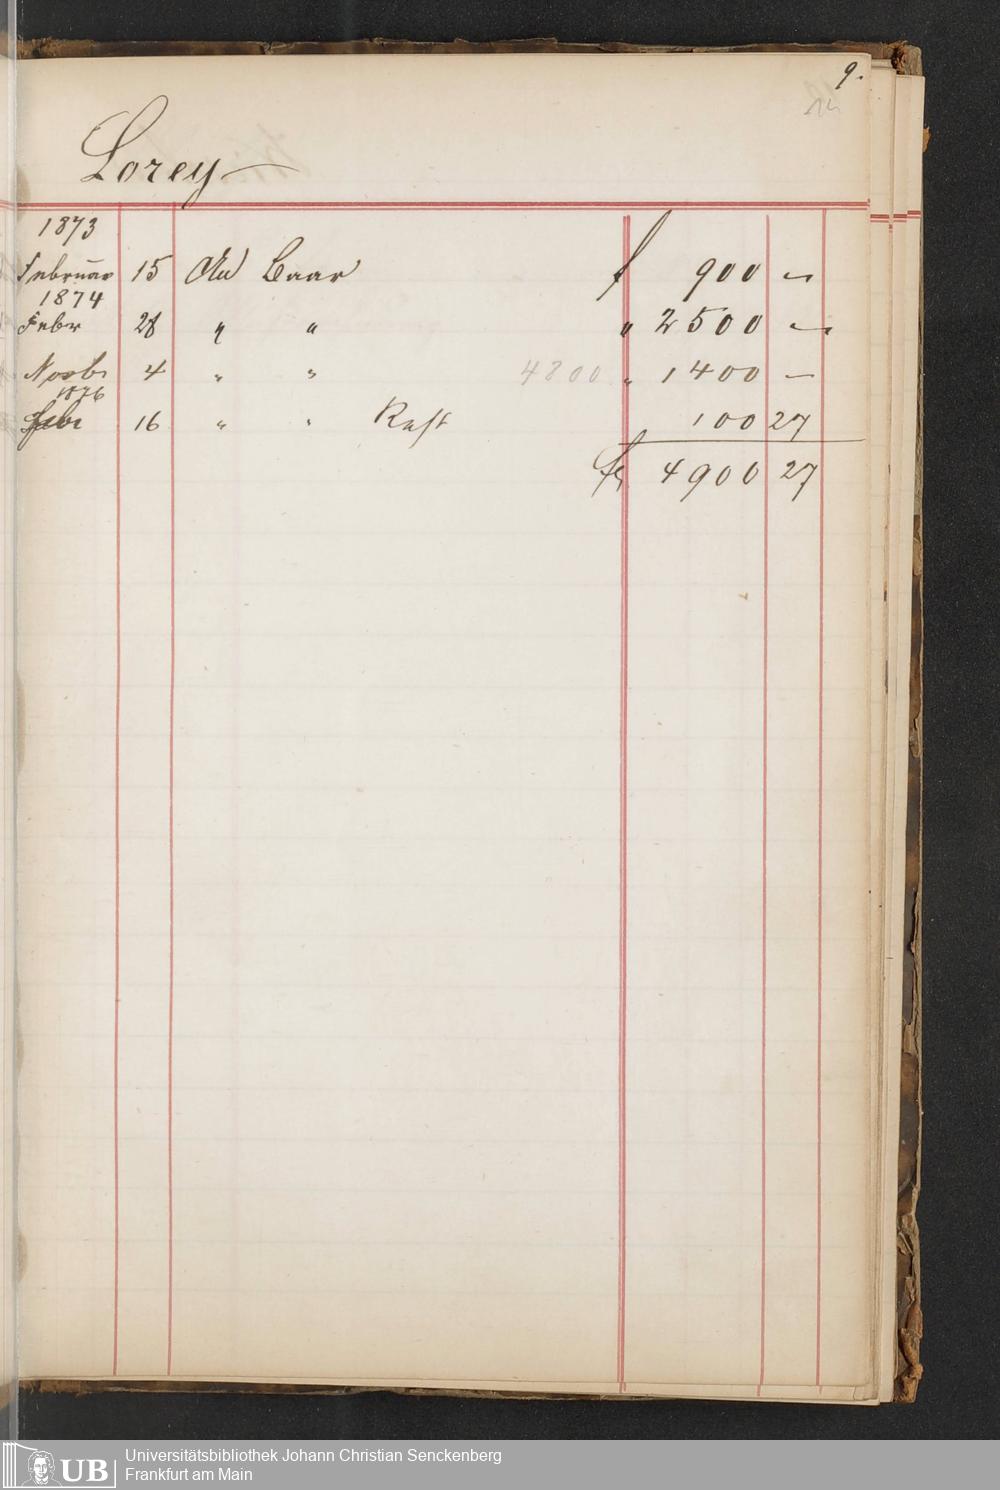 9.
Lorey
1873
Februar 15 An Baar f 900 –
1874
Febr 28 " " " 2500 –
Novbr 4 " " 4800 " 1400 –
1876
Febr 16 " " Rest 100 27
4900 27
UB Universitätsbibliothek Johann Christian Senckenberg
Frankfurt am Main